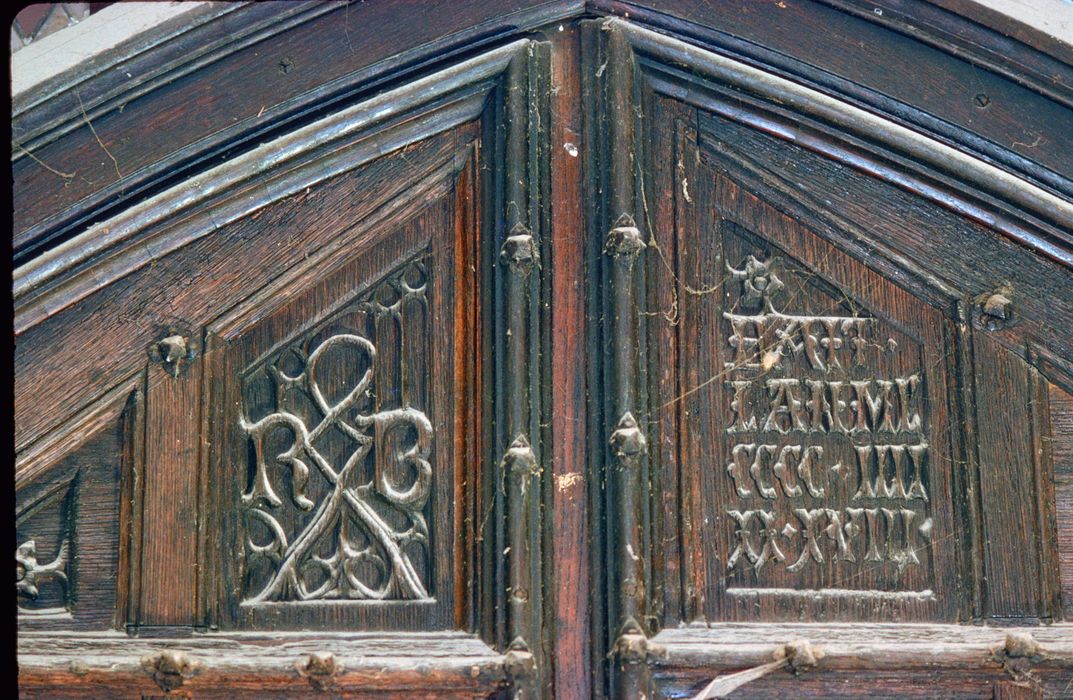 R B
FAIT·
LAN·ML
CCCC·IIII
XX·XVIII